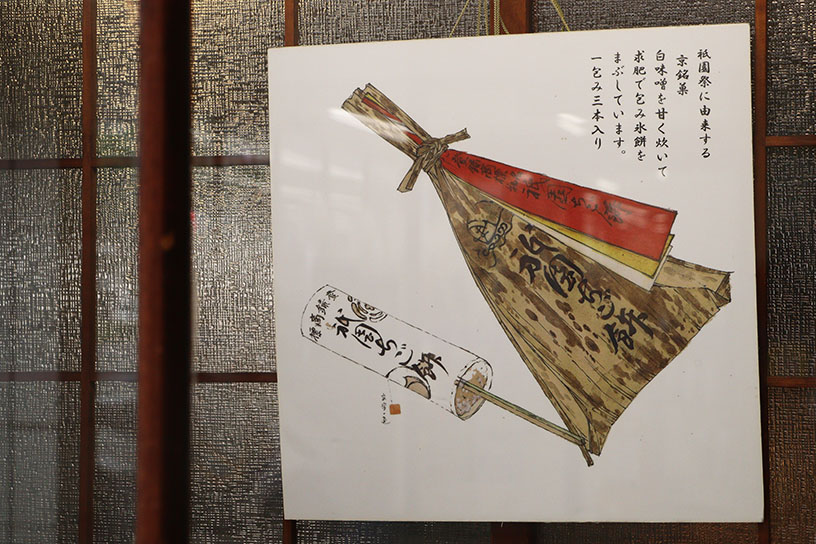 祇園祭に由来する
京銘菓
白味噌を甘く炊いて
求肥で包み氷餅を
まぶしています。
一包み三本入り
祇園ちご餅
祇園ちご餅
祇園ちご餅